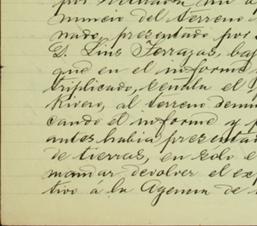 por
nuncio del terreno
nado, presentado por
D. Luis Terrazas, baj
que en el informe
triplicado, el
Rivero, al terreno denun
cando el informe y p
antes habia presenta
de tierras, en solo e
mandar devolver el ex
tivo a la Agencia de